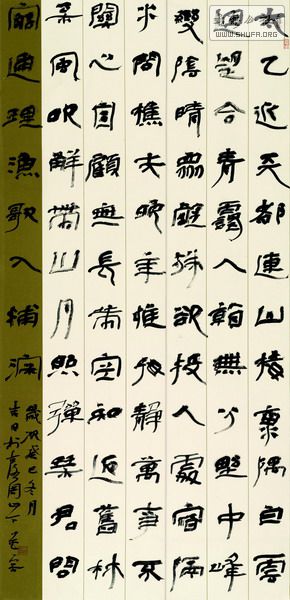 太乙近天都連山積東隅白雲
迴望合青靄入看無分野中峰
變陰晴眾壑殊欲投人處宿隔
水問樵夫晚年惟好靜萬事不
關心自顧無長策空知返舊林
松風吹解帶山月照彈琴君問
窮通理漁歌入浦深
歲次癸巳冬月
吉日於
WWW.SHUFA.ORG